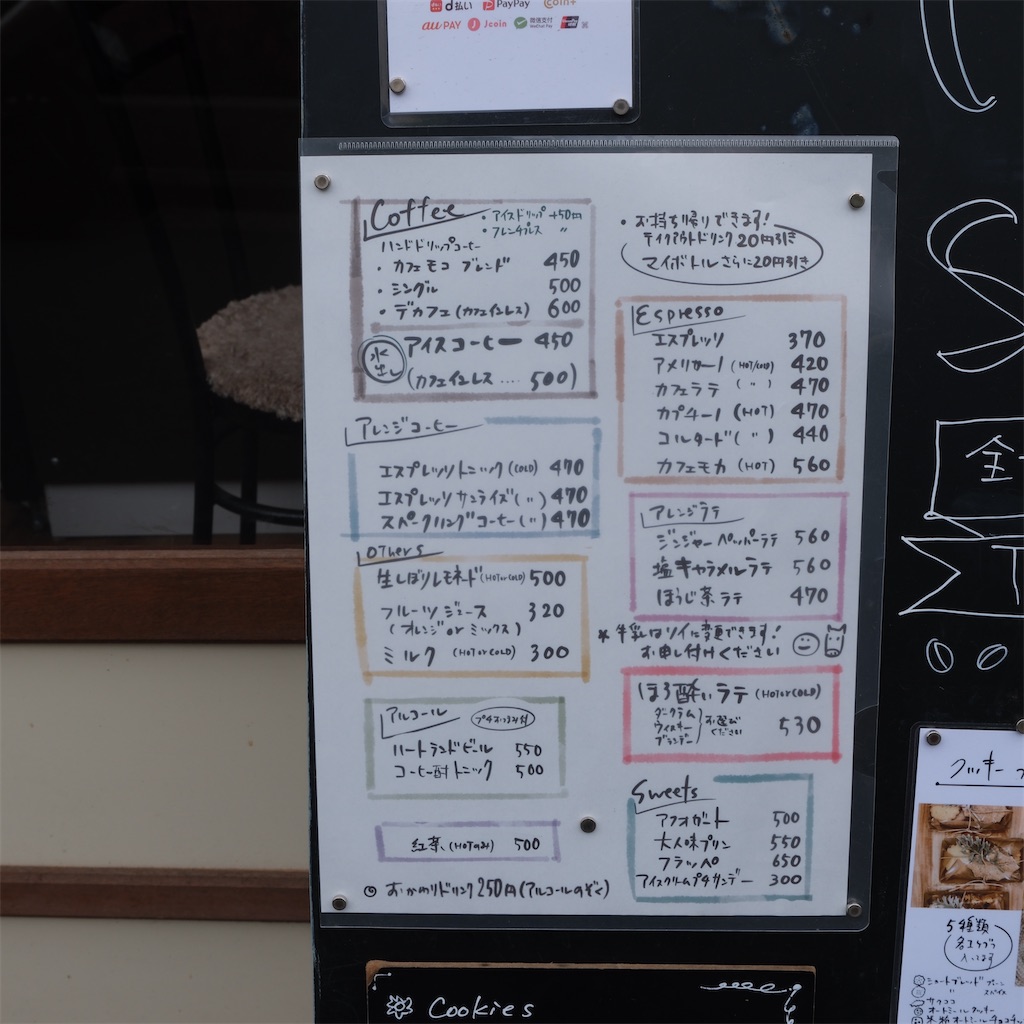 d払い PayPay Coin+
au PAY J coin 微信支付 WeChat Pay
Coffee
・アイスドリップ +50円
・フレンチプレス 〃
ハンドドリップコーヒー
・カフェモコ ブレンド 450
・シングル 500
・デカフェ(カフェインレス) 600
水出し アイスコーヒー 450
(カフェインレス .... 500)
アレンジコーヒー
エスプレッソトニック(COLD) 470
エスプレッソサンライズ(〃) 470
スパークリングコーヒー(〃) 470
Others
生しぼりレモネード(HOT or COLD) 500
フルーツジュース 320
(オレンジ or ミックス)
ミルク (HOT or COLD) 300
アルコール プチおつまみ付
ハートランドビール 550
コーヒー酎トニック 500
紅茶(HOTのみ) 500
◎ おかわりドリンク 250円(アルコールのぞく)
・お持ち帰りできます!
テイクアウトドリンク 20円引き
マイボトル さらに20円引き
Espresso
エスプレッソ 370
アメリカーノ (HOT/COLD) 420
カフェラテ (〃) 470
カプチーノ (HOT) 470
コルタード (〃) 440
カフェモカ (HOT) 560
アレンジラテ
ジンジャーペッパーラテ 560
塩キャラメルラテ 560
ほうじ茶ラテ 470
* 牛乳はソイに変更できます!
お申し付けください
ほろ酔いラテ (HOT or COLD)
ダークラム
ウィスキー
ブランデー
お選びください 530
Sweets
アフォガート 500
大人味プリン 550
フラッペ 650
アイスクリームプチサンデー 300
Cookies
全
T
クッキー
5種類
ショートブレッド プレーン
〃 スパイス
サクココ
オートミールクッキー